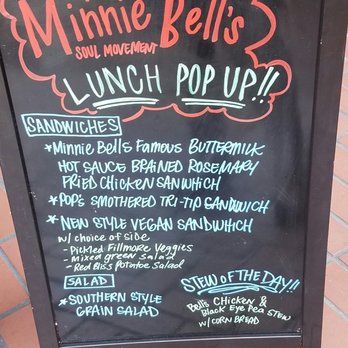 Minnie Bell's
SOUL MOVEMENT
LUNCH POP UP!!
SANDWICHES
* Minnie Bell's Famous BUTTERMILK
HOT SAUCE BRAINED ROSEMARY
FRIED CHICKEN SANWHICH
* POP'S SMOTHERED TRI-TIP SANDWICH
* NEW STYLE VEGAN SANDWHICH
w/ choice of side
- Pickled Fillmore Veggies
- Mixed green salad
- Red Bliss Potatoe Salad
SALAD
* SOUTHERN STYLE
GRAIN SALAD
STEW OF THE DAY!!
Bell's Chicken &
Black Eye Pea STEW
w/ CORN BREAD